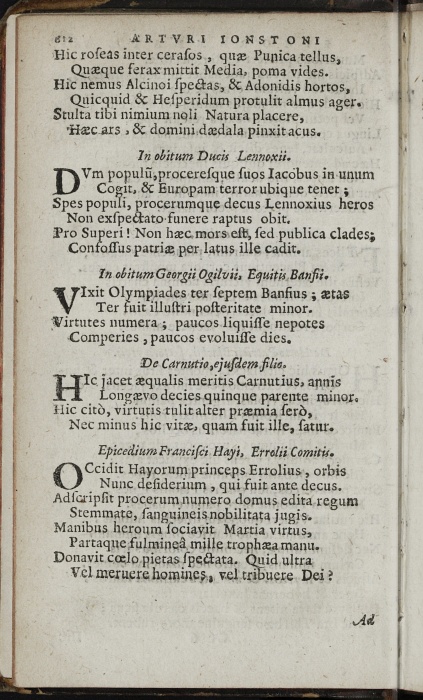 612 ARTVRI IONSTONI
Hic roſeas inter ceraſos, quæ Punica tellus,
Quæque ferax mittit Media, poma vides.
Hic nemus Alcinoi ſpectas, & Adonidis hortos,
Quicquid & Heſperidum protulit almus ager.
Stulta tibi nimium noli Natura placere,
Hæc ars, & domini dædala pinxit acus.
In obitum Ducis Lennoxii.
DVm populũ, procereſque ſuos Iacobus in unum
Cogit, & Europam terror ubique tenet;
Spes populi, procerumque decus Lennoxius heros
Non exſpectato funere raptus obit.
Pro Superi! Non hæc mors eſt, ſed publica clades;
Confoſſus patriæ per latus ille cadit.
In obitum Georgii Ogilvii, Equitis Banfii.
VIxit Olympiades ter ſeptem Banfius; ætas
Ter fuit illuſtri poſteritate minor.
Virtutes numera; paucos liquiſſe nepotes
Comperies, paucos evoluiſſe dies.
De Carnutio, ejuſdem filio.
HIc jacet æqualis meritis Carnutius, annis
Longævo decies quinque parente minor.
Hic citò, virtutis tulit alter præmia ſerò,
Nec minus hic vitæ, quam fuit ille, ſatur.
Epicedium Franciſci Hayi, Errolii Comitis.
OCcidit Hayorum princeps Errolius, orbis
Nunc deſiderium, qui fuit ante decus.
Adſcripſit procerum numero domus edita regum
Stemmate, ſanguineis nobilitata jugis.
Manibus heroum ſociavit Martia virtus,
Partaque fulmineâ mille trophæa manu.
Donavit cœlo pietas ſpectata. Quid ultra
Vel meruere homines, vel tribuere Dei?
Ad